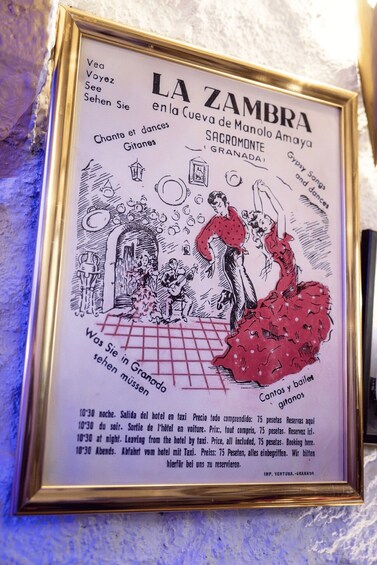 Vea
Voyez
See
Sehen Sie
LA ZAMBRA
en la Cueva de Manolo Amaya
SACROMONTE
(GRANADA)
Chants et dances
Gitanes
Gypsy Songs
and dances
Was Sie in Granada
sehen müssen
Cantos y bailes
gitanos
10'30 noche. Salida del hotel en taxi Precio todo comprendido: 75 pesetas Reservas aquí
10'30 du soir. Sortie de l'hôtel en voiture. Prix, tout compris, 75 pesetas. Reservez ici.
10'30 at night. Leaving from the hotel by taxi. Price, all included, 75 pesetas. Booking here.
10'30 Abends. Abfahrt vom hotel mit Taxi. Preis: 75 Pesetas, alles einbegriffen. Wir bitten
hierfür bei uns zu reservieren.
IMP. VENTURA.-GRANADA